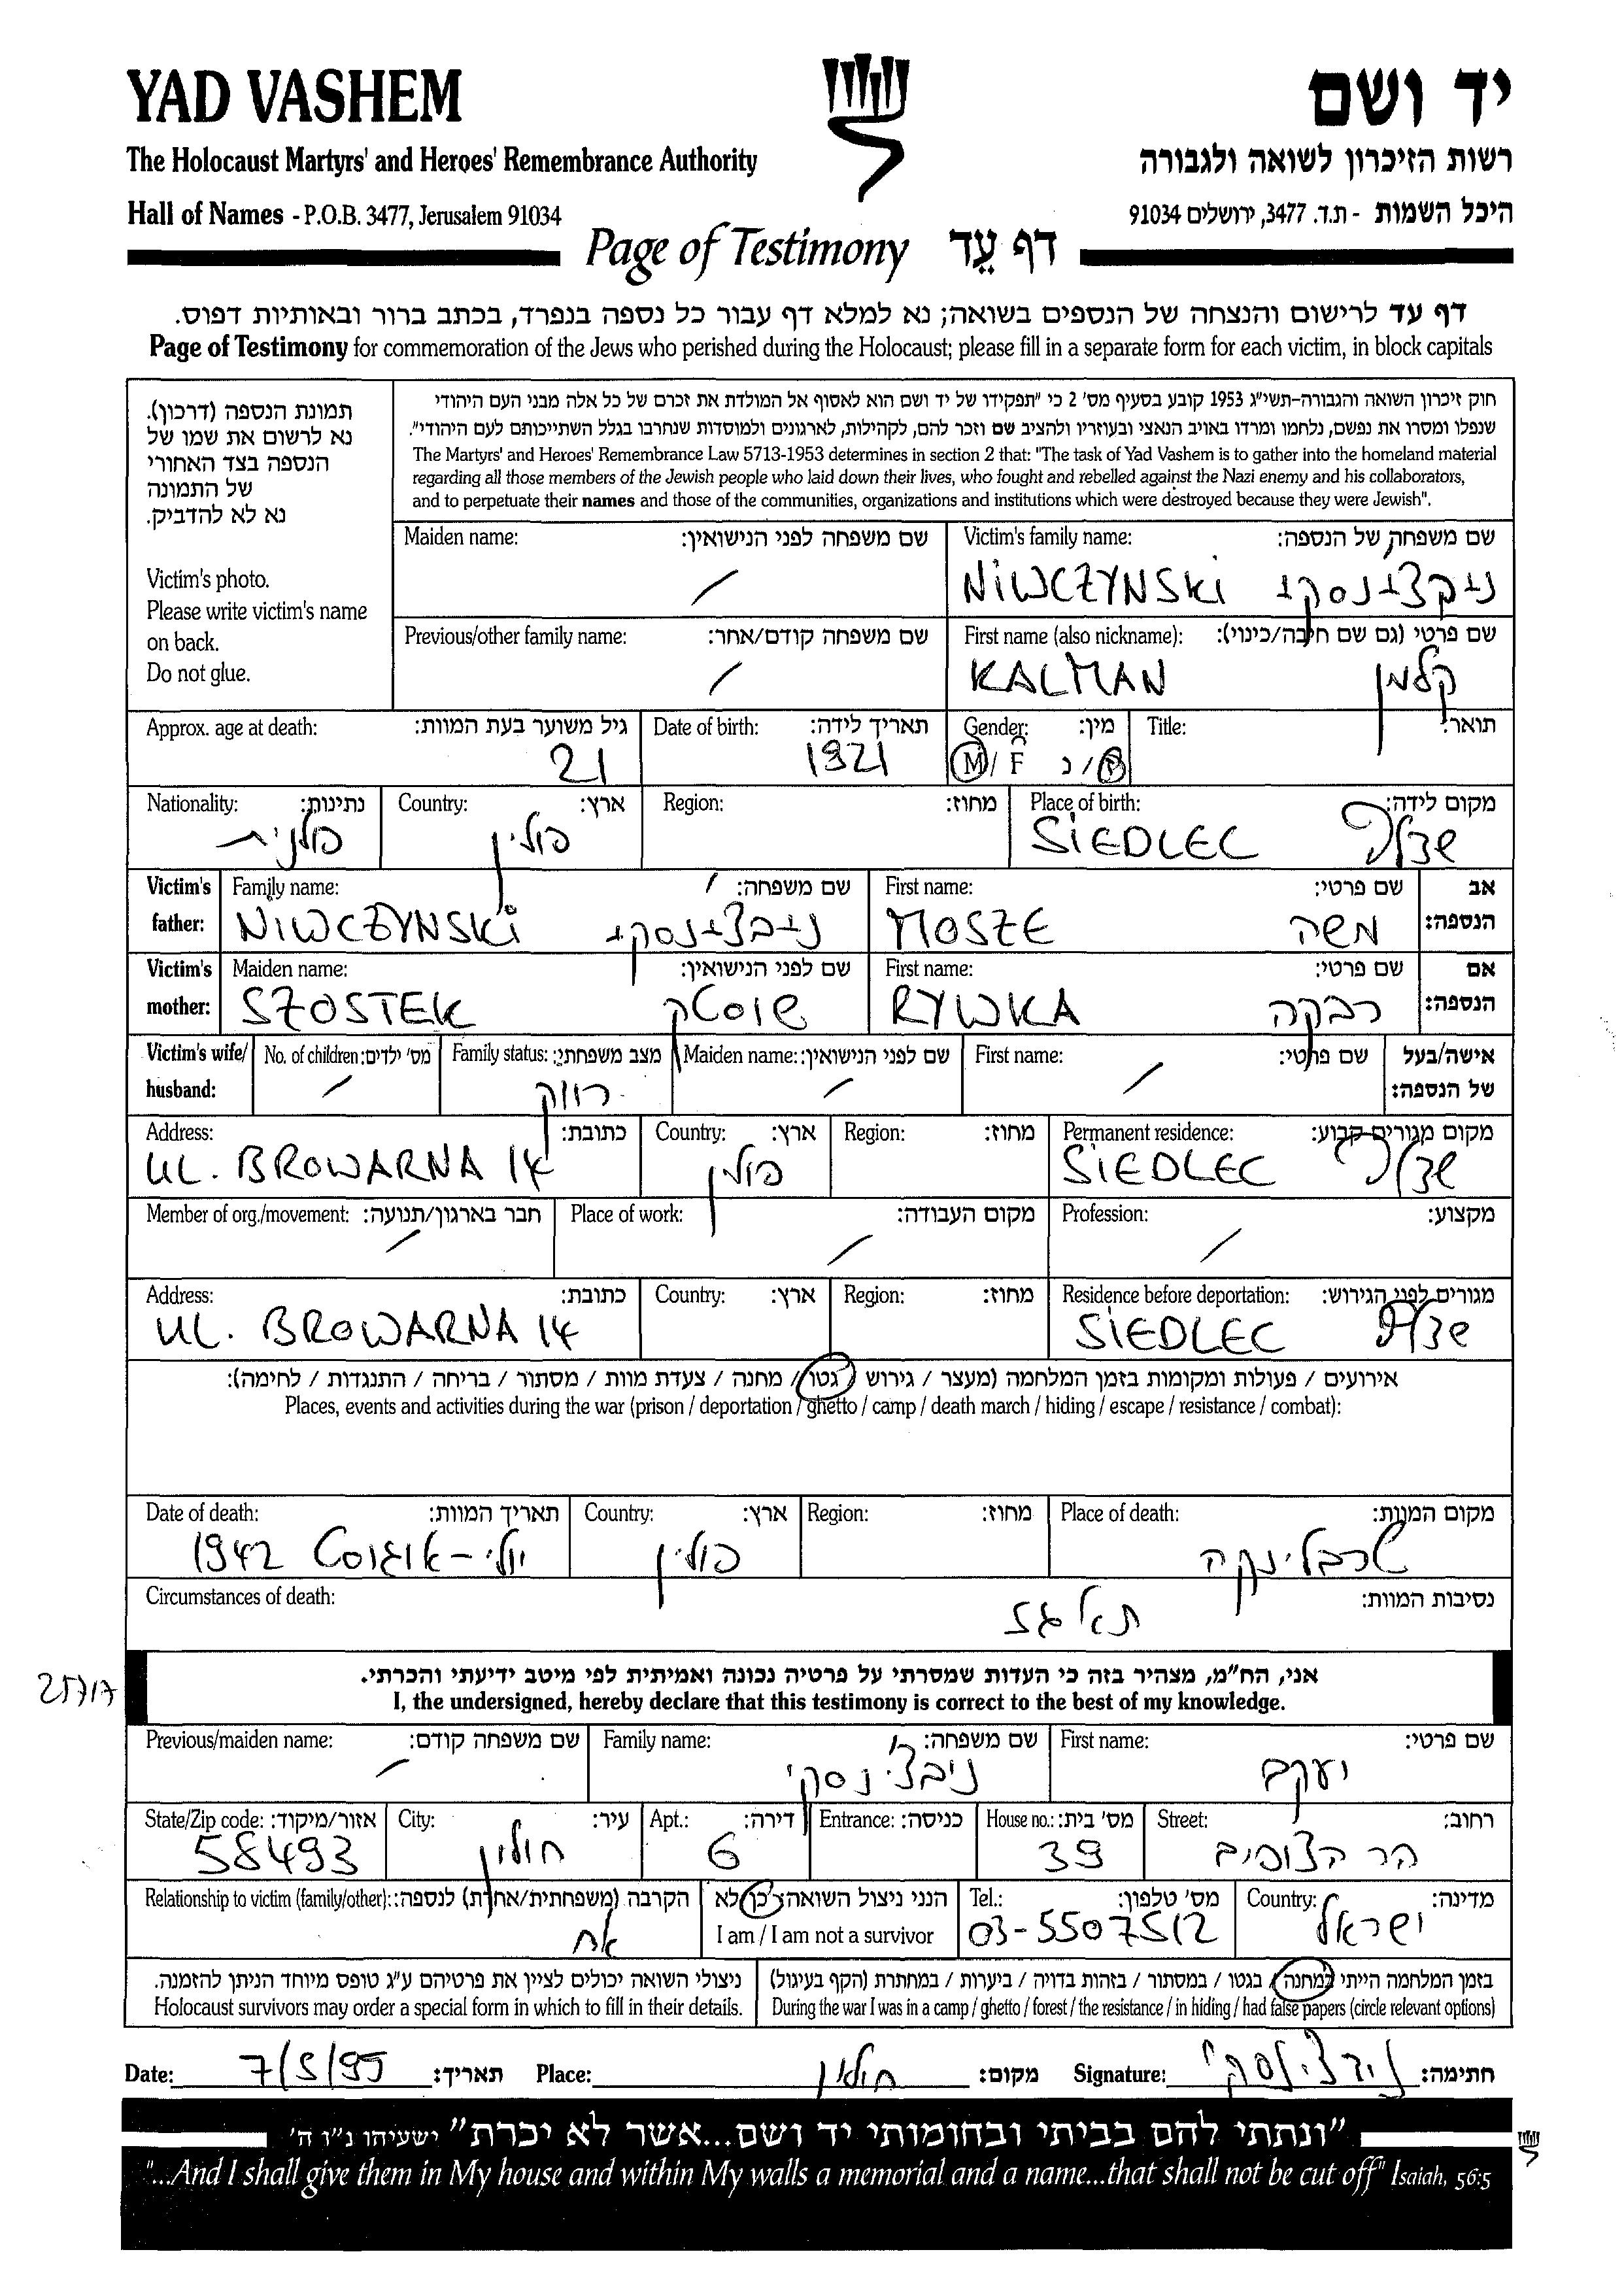 YAD VASHEM יד ושם
The Holocaust Martyrs' and Heroes' Remembrance Authority רשות הזיכרון לשואה ולגבורה
Hall of Names - P.O.B. 3477, Jerusalem 91034 היכל השמות - ת.ד. 3477, ירושלים 91034
Page of Testimony דף עֵד
דף עד לרישום והנצחה של הנספים בשואה; נא למלא דף עבור כל נספה בנפרד, בכתב ברור ובאותיות דפוס.
Page of Testimony for commemoration of the Jews who perished during the Holocaust; please fill in a separate form for each victim, in block capitals
תמונת הנספה (דרכון).
נא לרשום את שמו של
הנספה בצד האחורי
של התמונה
נא לא להדביק.
Victim's photo.
Please write victim's name
on back.
Do not glue.
חוק זיכרון השואה והגבורה-תשי"ג 1953 קובע בסעיף מס' 2 כי "תפקידו של יד ושם הוא לאסוף אל המולדת את זכרם של כל אלה מבני העם היהודי
שנפלו ומסרו את נפשם, נלחמו ומרדו באויב הנאצי ובעוזריו ולהציב שם וזכר להם, לקהילות, לארגונים ולמוסדות שנחרבו בגלל השתייכותם לעם היהודי".
The Martyrs' and Heroes' Remembrance Law 5713-1953 determines in section 2 that: "The task of Yad Vashem is to gather into the homeland material
regarding all those members of the Jewish people who laid down their lives, who fought and rebelled against the Nazi enemy and his collaborators,
and to perpetuate their names and those of the communities, organizations and institutions which were destroyed because they were Jewish".
Maiden name: שם משפחה לפני הנישואין: Victim's family name: שם משפחה של הנספה:
/ NIWCZYNSKI ניבצ'ינסקי
Previous/other family name: שם משפחה קודם/אחר: First name (also nickname): שם פרטי (גם שם חיבה/כינוי):
/ KALMAN קלמן
Approx. age at death: גיל משוער בעת המוות: Date of birth: תאריך לידה: Gender: מין: Title: תואר:
21 1921 M / F ז / נ
Nationality: נתינות: Country: ארץ: Region: מחוז: Place of birth: מקום לידה:
פולנית פולין SIEDLEC שדלץ
Victim's Family name: שם משפחה: First name: שם פרטי: אב
father: NIWCZYNSKI ניבצ'ינסקי MOSZE משה הנספה:
Victim's Maiden name: שם לפני הנישואין: First name: שם פרטי: אם
mother: SZOSTEK שוסטק RYWKA רבקה הנספה:
Victim's wife/ No. of children: מס' ילדים: Family status: מצב משפחתי: Maiden name: שם לפני הנישואין: First name: שם פרטי: אישה/בעל
husband: / רווק / / של הנספה:
Address: כתובת: Country: ארץ: Region: מחוז: Permanent residence: מקום מגורים קבוע:
UL. BROWARNA 14 פולין SIEDLEC שדלץ
Member of org./movement: חבר בארגון/תנועה: Place of work: מקום העבודה: Profession: מקצוע:
/ / /
Address: כתובת: Country: ארץ: Region: מחוז: Residence before deportation: מגורים לפני הגירוש:
UL. BROWARNA 14 SIEDLEC שדלץ
אירועים / פעולות ומקומות בזמן המלחמה (מעצר / גירוש / גטו / מחנה / צעדת מוות / מסתור / בריחה / התנגדות / לחימה):
Places, events and activities during the war (prison / deportation / ghetto / camp / death march / hiding / escape / resistance / combat):
Date of death: תאריך המוות: Country: ארץ: Region: מחוז: Place of death: מקום המוות:
יולי - אוגוסט 1942 פולין טרבלינקה
Circumstances of death: נסיבות המוות:
תא גז
אני, הח"מ, מצהיר בזה כי העדות שמסרתי על פרטיה נכונה ואמיתית לפי מיטב ידיעתי והכרתי.
I, the undersigned, hereby declare that this testimony is correct to the best of my knowledge.
Previous/maiden name: שם משפחה קודם: Family name: שם משפחה: First name: שם פרטי:
/ ניבצ'ינסקי יעקב
State/Zip code: אזור/מיקוד: City: עיר: Apt.: דירה: Entrance: כניסה: House no.: מס' בית: Street: רחוב:
58493 חולון 6 39 הר הצופים
Relationship to victim (family/other): הקרבה (משפחתית/אחרת) לנספה: הנני ניצול השואה: כן/לא Tel.: מס' טלפון: Country: מדינה:
אח I am / I am not a survivor 03-5507512 ישראל
ניצולי השואה יכולים לציין את פרטיהם ע"ג טופס מיוחד הניתן להזמנה. בזמן המלחמה הייתי במחנה / בגטו / במסתור / בזהות בדויה / ביערות / במחתרת (הקף בעיגול)
Holocaust survivors may order a special form in which to fill in their details. During the war I was in a camp / ghetto / forest / the resistance / in hiding / had false papers (circle relevant options)
Date: 7/5/95 תאריך: Place: חולון מקום: Signature: ניבצ'ינסקי חתימה:
"ונתתי להם בביתי ובחומותי יד ושם...אשר לא יכרת" ישעיהו נ"ו ה'
"...And I shall give them in My house and within My walls a memorial and a name...that shall not be cut off" Isaiah, 56:5